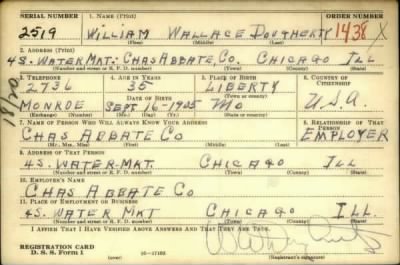 SERIAL NUMBER 1. NAME (Print) ORDER NUMBER
2519 WILLIAM WALLACE DOUGHERTY 1438 X
(First) (Middle) (Last)
2. ADDRESS (Print)
4S. WATER MKT: CHAS ABBATE, CO. CHICAGO ILL
(Number and street or R. F. D. number) (Town) (County) (State)
3. TELEPHONE 4. AGE IN YEARS 5. PLACE OF BIRTH 6. COUNTRY OF CITIZENSHIP
2736 35 LIBERTY
DATE OF BIRTH (Town or county)
MONROE SEPT. 16-1905 MO U.S.A.
(Exchange) (Number) (Mo.) (Day) (Yr.) (State or country)
7. NAME OF PERSON WHO WILL ALWAYS KNOW YOUR ADDRESS 8. RELATIONSHIP OF THAT PERSON
CHAS ABBATE CO EMPLOYER
(Mr., Mrs., Miss) (First) (Middle) (Last)
9. ADDRESS OF THAT PERSON
4S. WATER-MKT. CHICAGO ILL
(Number and street or R. F. D. number) (Town) (County) (State)
10. EMPLOYER'S NAME
CHAS ABBATE CO
11. PLACE OF EMPLOYMENT OR BUSINESS
4S. WATER MKT CHICAGO ILL.
(Number and street or R. F. D. number) (Town) (County) (State)
I AFFIRM THAT I HAVE VERIFIED ABOVE ANSWERS AND THAT THEY ARE TRUE.
REGISTRATION CARD
D. S. S. Form 1 16-17105 (Registrant's signature)